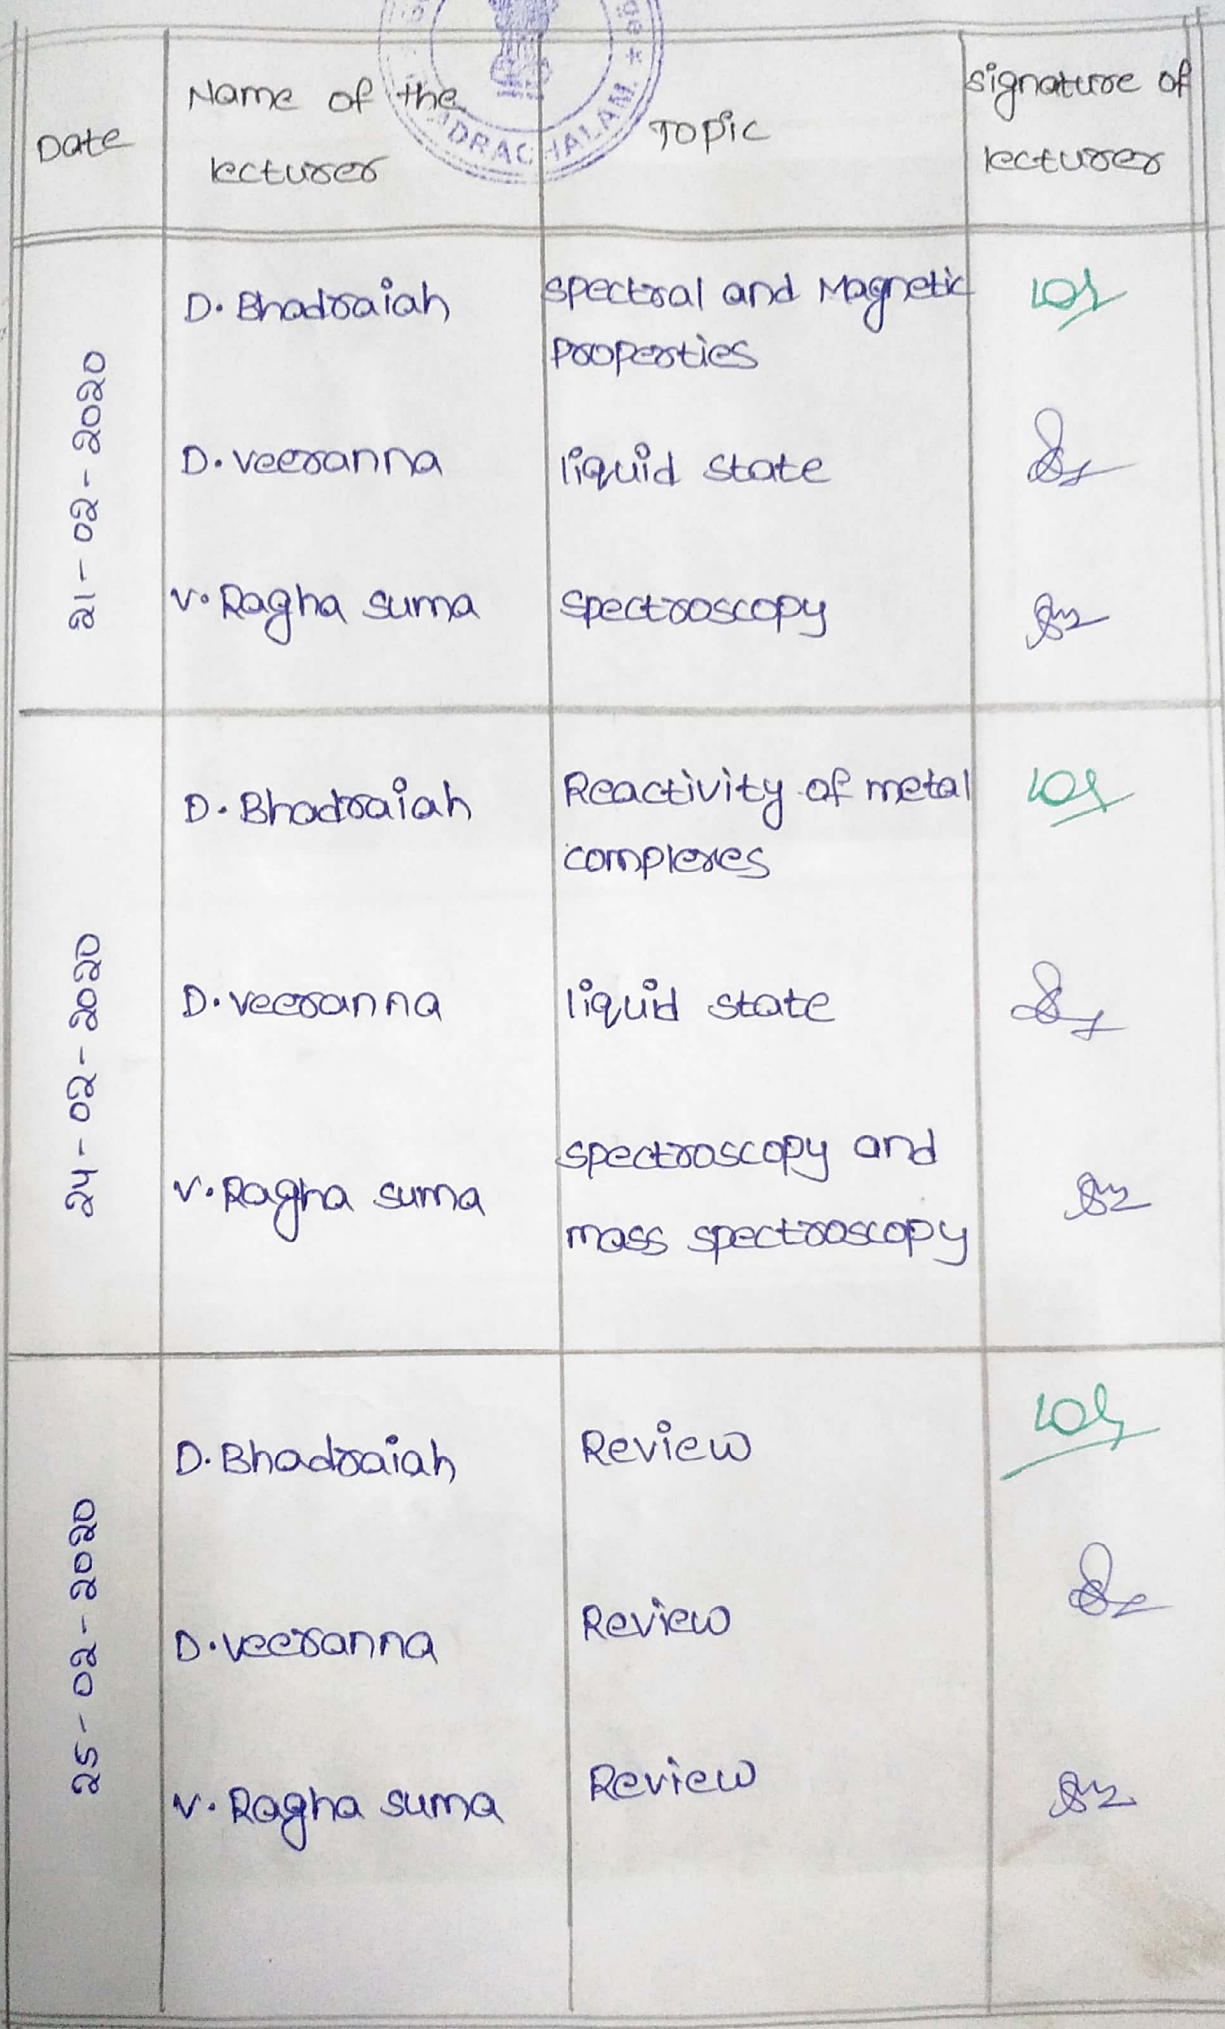 Date
Name of the
lecturer
Topic
signature of
lecturer
BHADRACHALAM
21-02-2020
D. Bhadraiah
spectral and Magnetic
properties
D. veeranna
liquid state
V. Ragha suma
spectroscopy
24-02-2020
D. Bhadraiah
Reactivity of metal
complexes
D. veeranna
liquid state
V. Ragha suma
spectroscopy and
mass spectroscopy
25-02-2020
D. Bhadraiah
Review
D. veeranna
Review
V. Ragha suma
Review